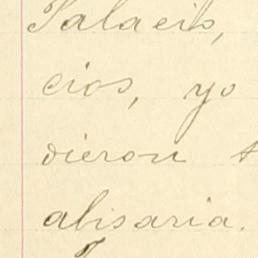 Palacio,
cios, yo
dieron
abisaria.